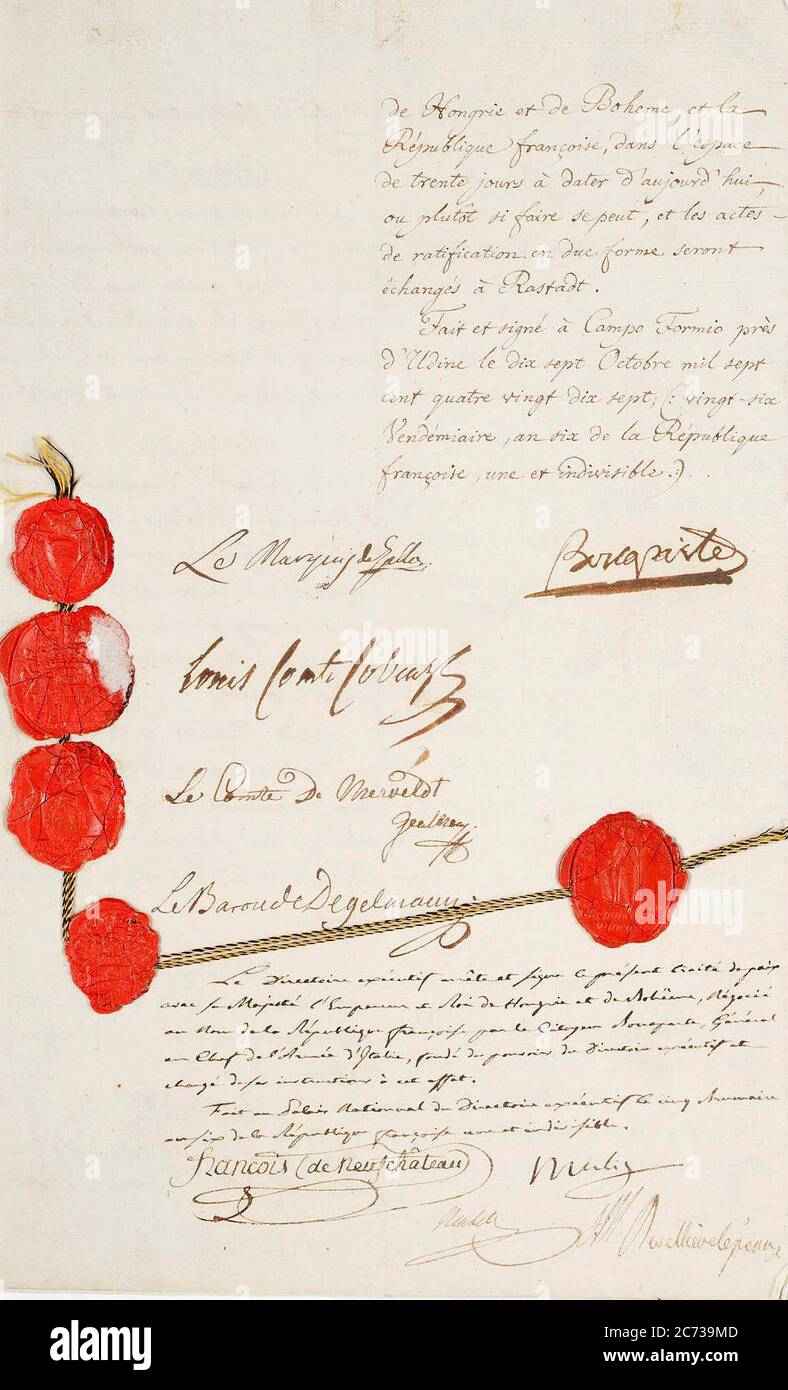 de Hongrie et de Boheme, et la
République françoise, dans l'espace
de trente jours à dater d'aujourd'hui,
ou plutôt si faire se peut, et les actes
de ratification en due forme seront
échangés à Rastadt.
Fait et signé à Campo Formio près
d'Udine le dix sept Octobre mil sept
cent quatre vingt dix sept; (: vingt-six
Vendémiaire, an six de la République
françoise, une et indivisible.:)
Le Marquis de Gallo.
Bonaparte
Louis Comte Cobenzl
Le Comte De Merveldt
Le Baron de Degelmann
Le Directoire exécutif arrête et signe le présent traité de paix
avec sa Majesté l'Empereur et Roi de Hongrie et de Bohëme, Négocié
au Nom de la République françoise par le Citoyen Bonaparte, Général
en Chef de l'Armée d'Italie, fondé de pouvoirs du Directoire exécutif et
chargé de ses instructions à cet effet.
Fait au Palais National du Directoire exécutif le cinq Brumaire
an six de la République françoise une et indivisible.
François (de Neufchâteau)
Merlin
Reubell
Reveillère Lépeaux
alamy
Image ID: 2C739MD
www.alamy.com